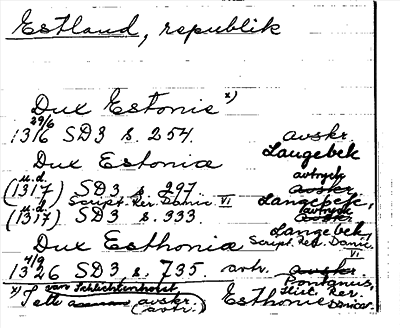 Estland, republik
Dux Estonie x)
29/6
1316 SD3 s. 254. avskr. Langebek
Dux Estonia
u.d. avtryck
(1317) SD3 s. 297. avskr. Langebek,
Script. Rer. Danic. VI
u.d. avtryck
(1317) SD3 s. 333. avskr. Langebek,
Dux Esthonia Script. Rer. Danic. VI
4/9
1326 SD3, s. 735. avtr. avskr. Pontanus,
van Schlichtenhorst Hist. Rer. Danicar.
x) I ett avskr. Esthonie
(avtr.)